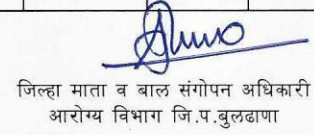 जिल्हा माता व बाल संगोपन अधिकारी
आरोग्य विभाग जि.प.बुलढाणा